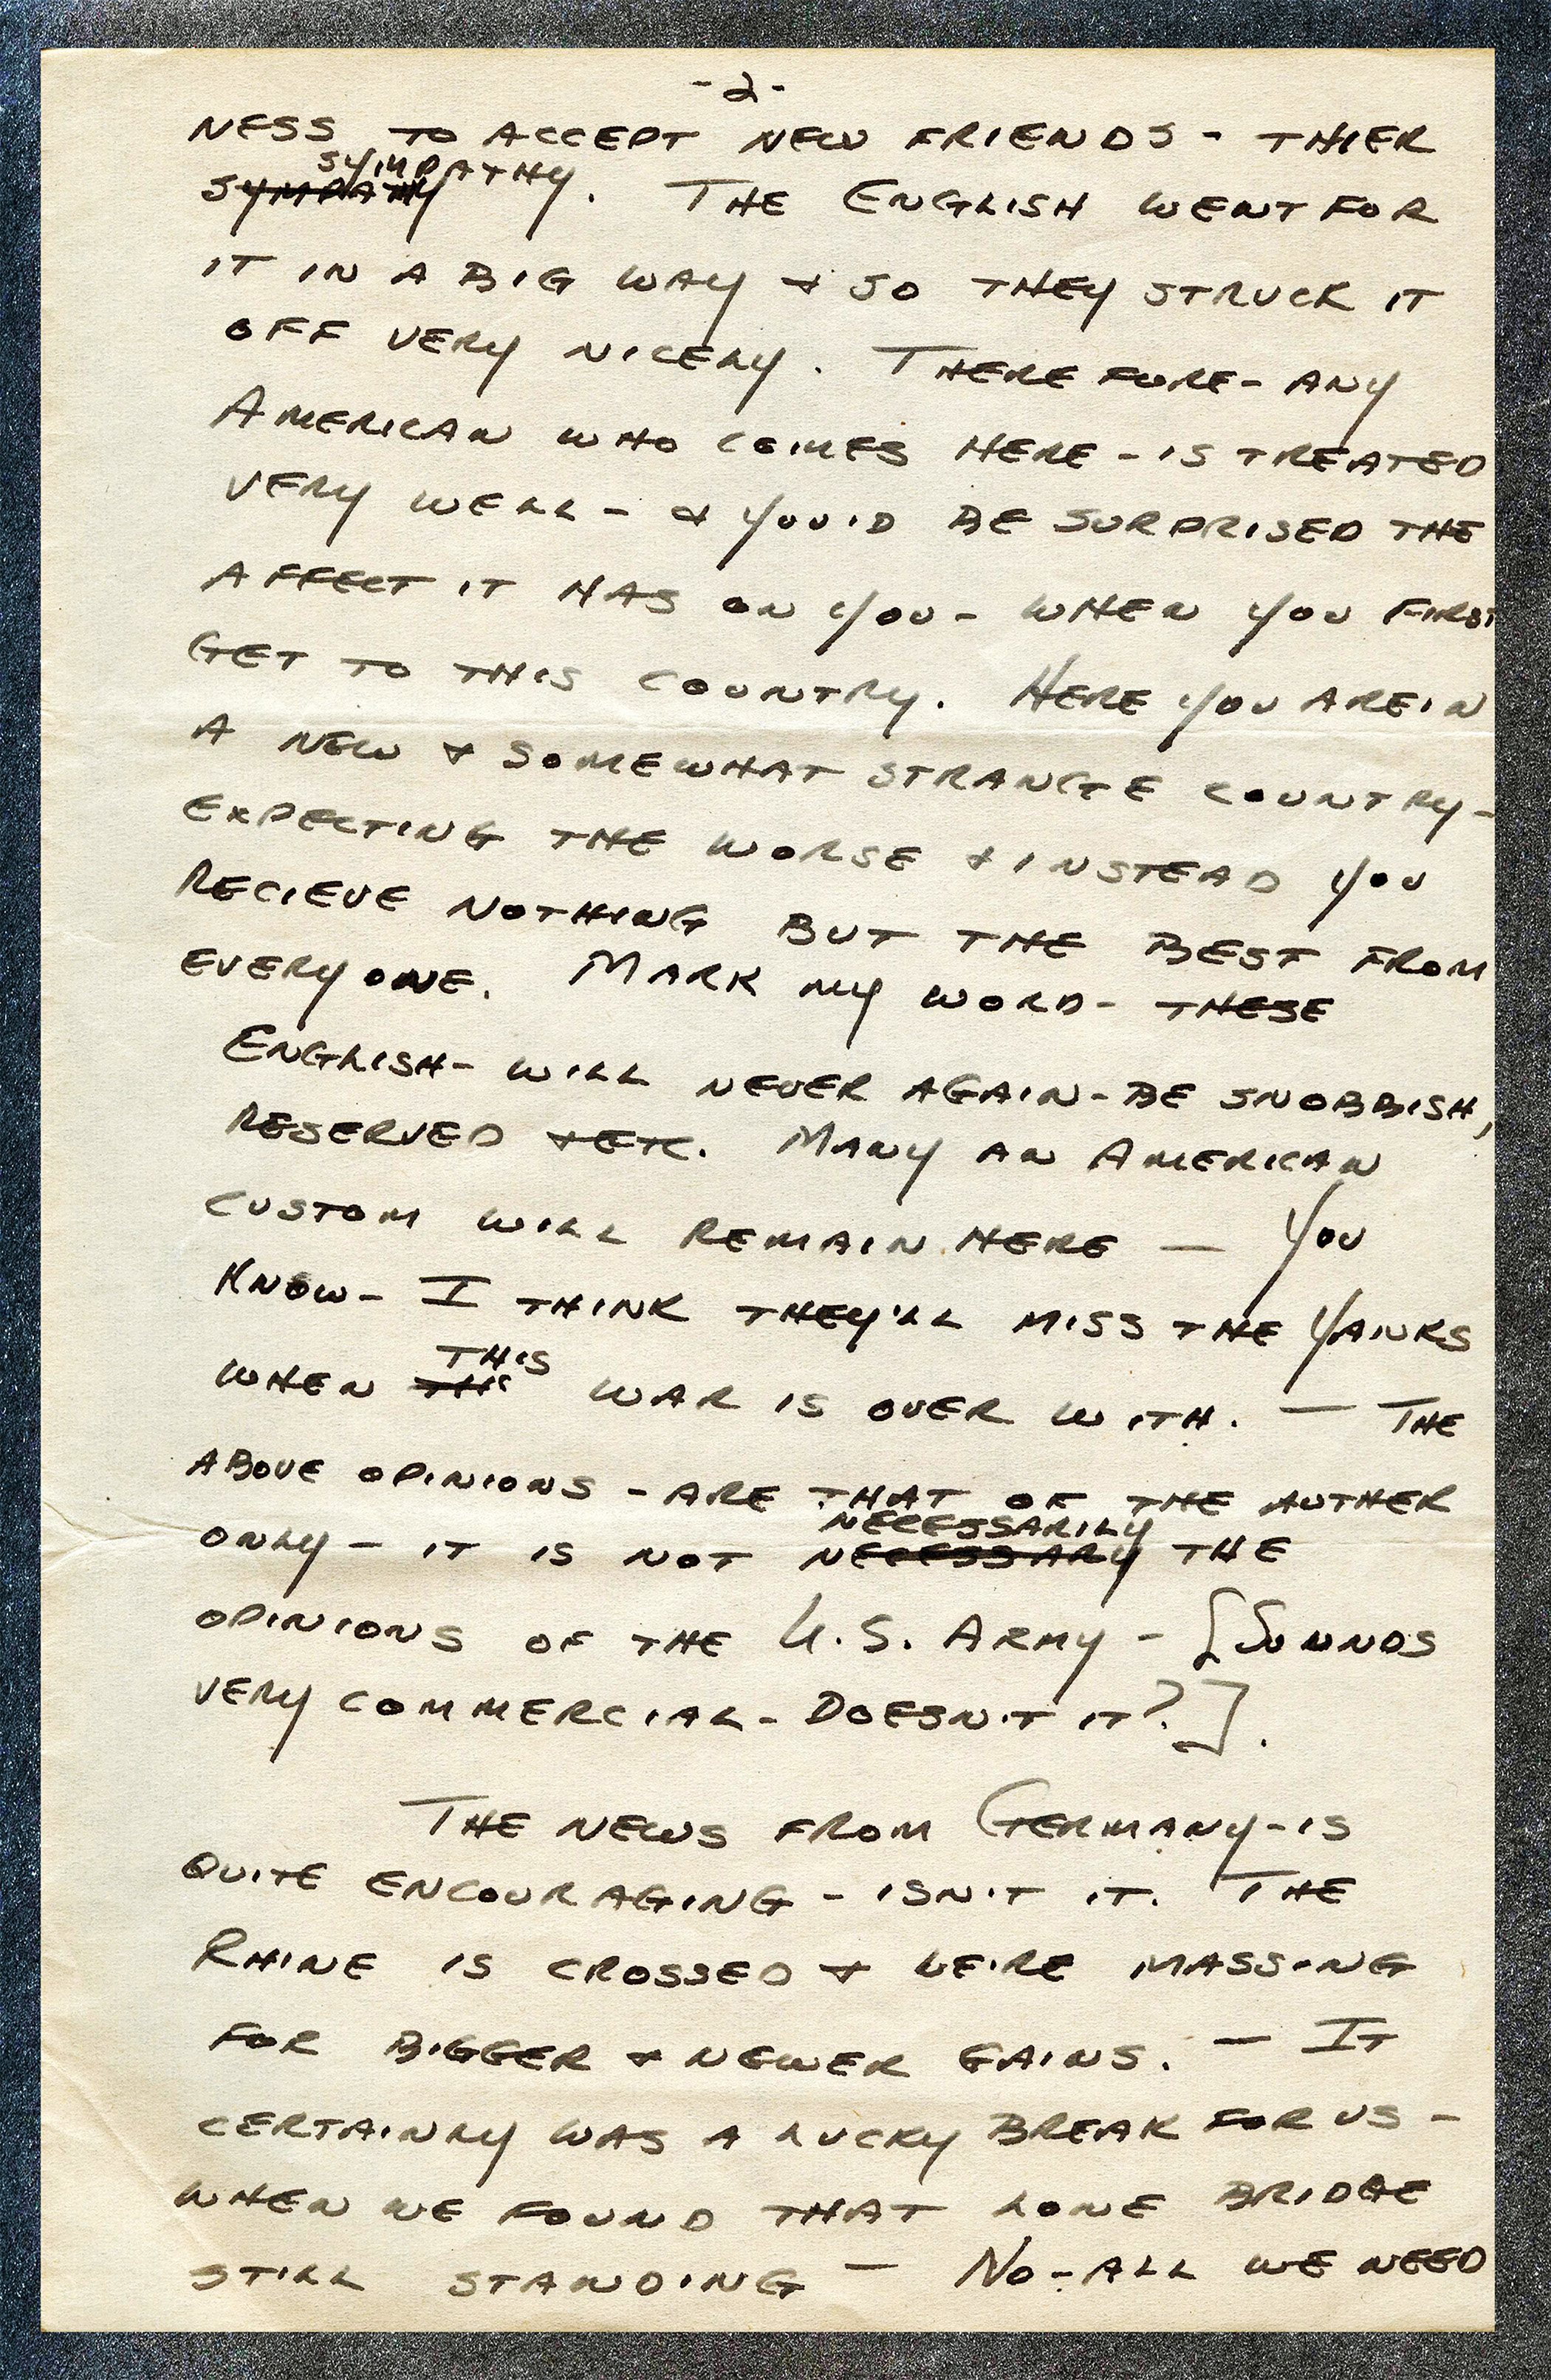 -2-
NESS TO ACCEPT NEW FRIENDS - THIER
SYMPATHY
SYMPATHY. THE ENGLISH WENT FOR
IT IN A BIG WAY & SO THEY STRUCK IT
OFF VERY NICELY. THERE FORE - ANY
AMERICAN WHO COMES HERE - IS TREATED
VERY WELL - & YOU'D BE SURPRISED THE
AFFECT IT HAS ON YOU - WHEN YOU FIRST
GET TO THIS COUNTRY. HERE YOU ARE IN
A NEW & SOMEWHAT STRANGE COUNTRY -
EXPECTING THE WORSE & INSTEAD YOU
RECIEVE NOTHING BUT THE BEST FROM
EVERYONE. MARK MY WORD - THESE
ENGLISH - WILL NEVER AGAIN - BE SNOBBISH,
RESERVED & ETC. MANY AN AMERICAN
CUSTOM WILL REMAIN HERE — YOU
KNOW - I THINK THEY'LL MISS THE YANKS
WHEN THIS WAR IS OVER WITH. — THE
ABOVE OPINIONS - ARE THAT OF THE AUTHER
NECESSARILY
ONLY - IT IS NOT NECESSARY THE
OPINIONS OF THE U.S. ARMY - [SOUNDS
VERY COMMERCIAL - DOESN'T IT?].
THE NEWS FROM GERMANY - IS
QUITE ENCOURAGING - ISN'T IT. THE
RHINE IS CROSSED & WE'RE MASSING
FOR BIGGER & NEWER GAINS. — IT
CERTAINLY WAS A LUCKY BREAK FOR US -
WHEN WE FOUND THAT LONE BRIDGE
STILL STANDING — NO - ALL WE NEED